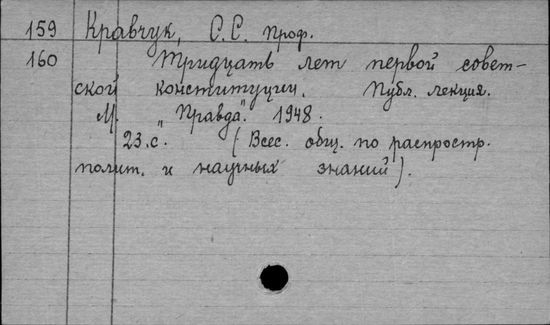 159 Кравчук, С.С. Проф.
160 Тридцать лет первой совет-
ской конституции. Публ. лекция.
М. "Правда". 1948.
23.с. (Всес. общ. по распростр.
полит. и научных знаний).